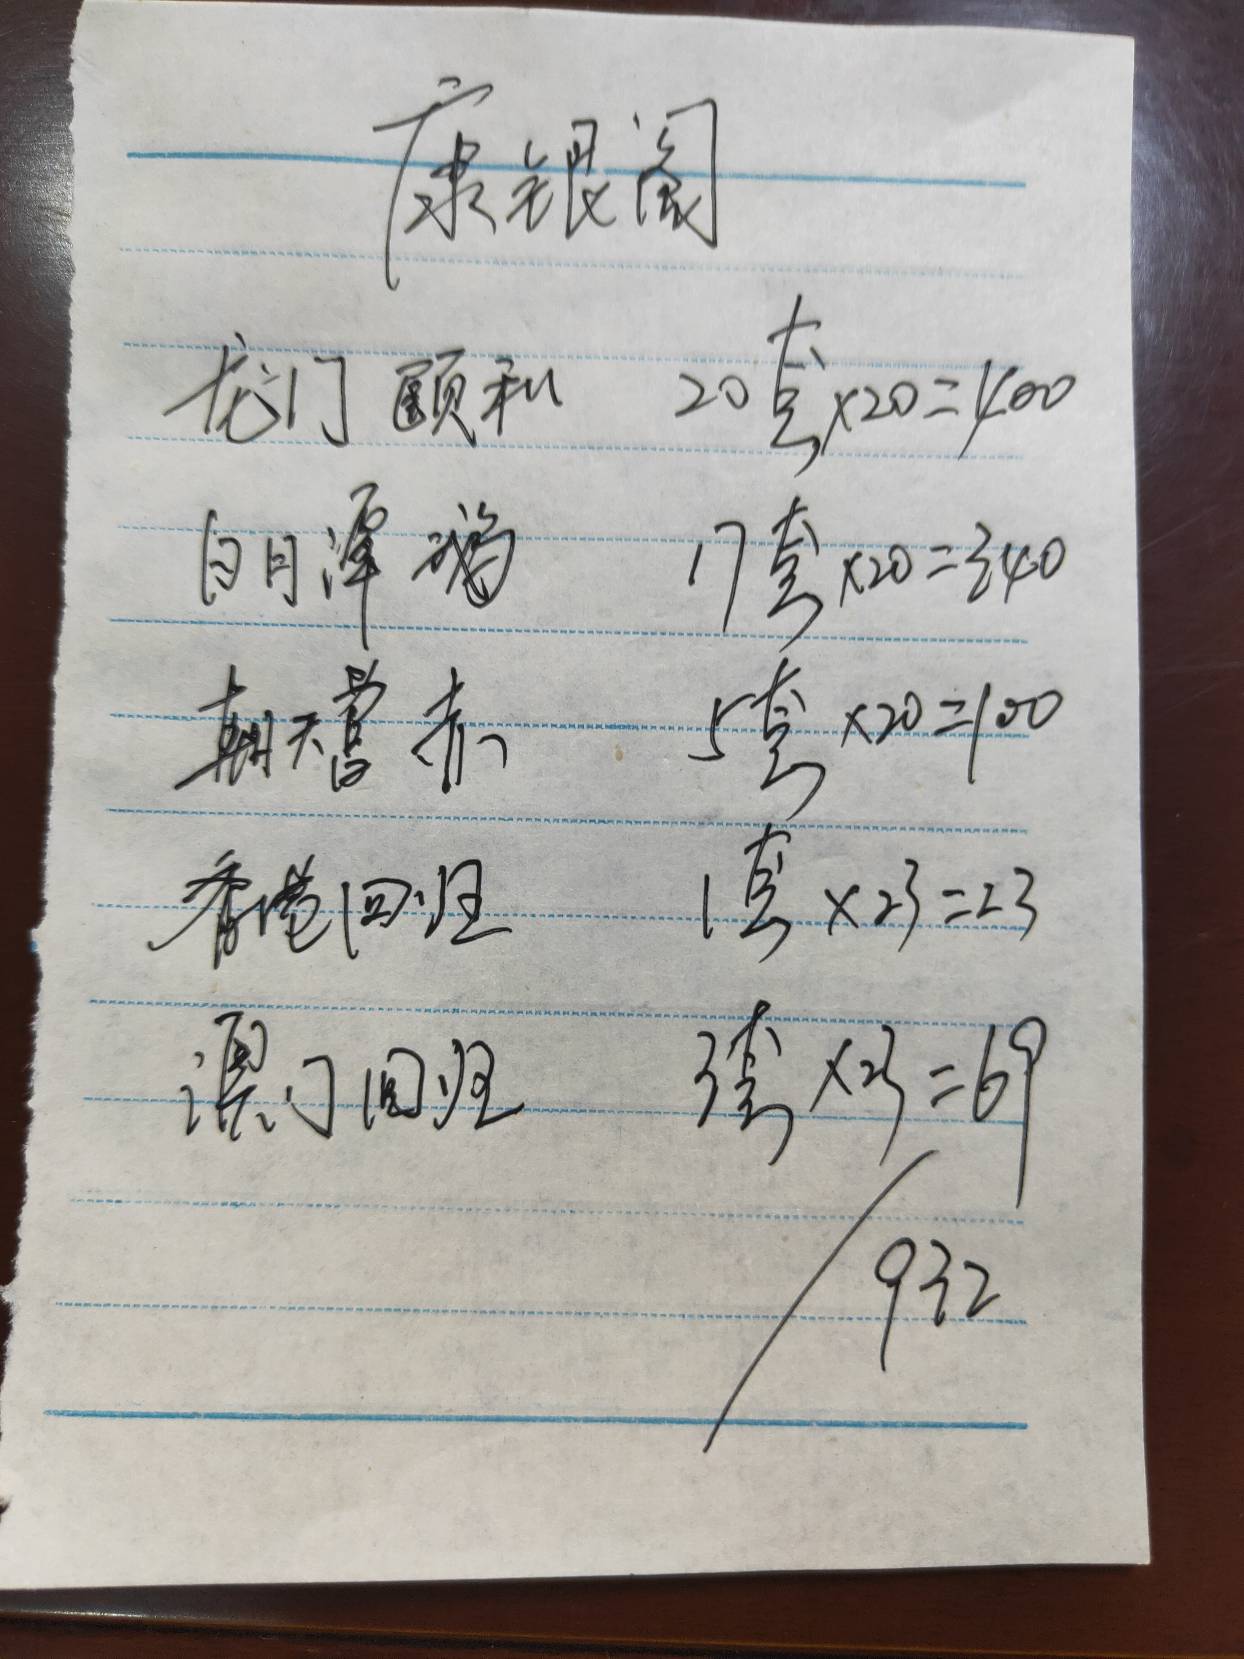 康银阁
龙门 颐和 20套×20=400
日月潭 鹅 17套×20=340
朝天宫 赤 5套×20=100
香港回归 1套×23=23
澳门回归 3套×23=69
932